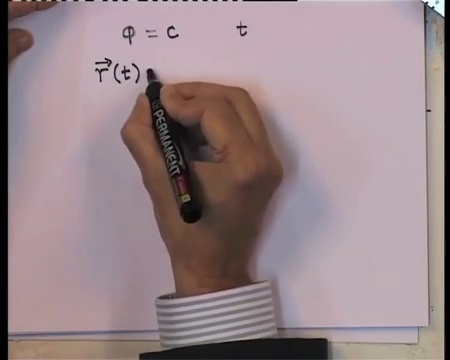 φ = c t
r⃗(t)
PERMANENT